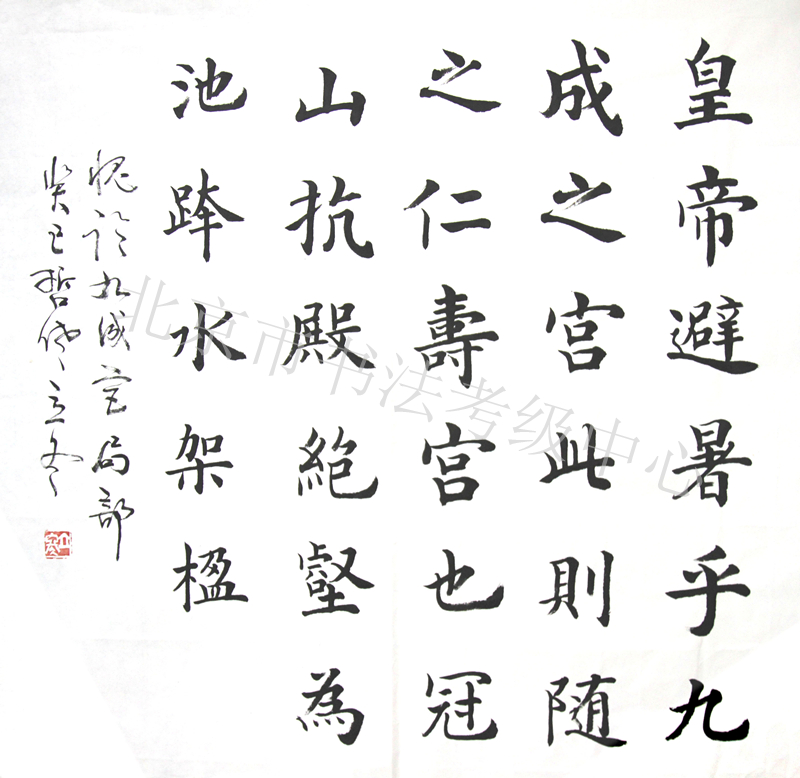 皇帝避暑乎九
成之宫此則随
之仁壽宫也冠
山抗殿絶壑為
池跨水架楹
九成宫局部
癸巳
立冬
北京市书法考级中心